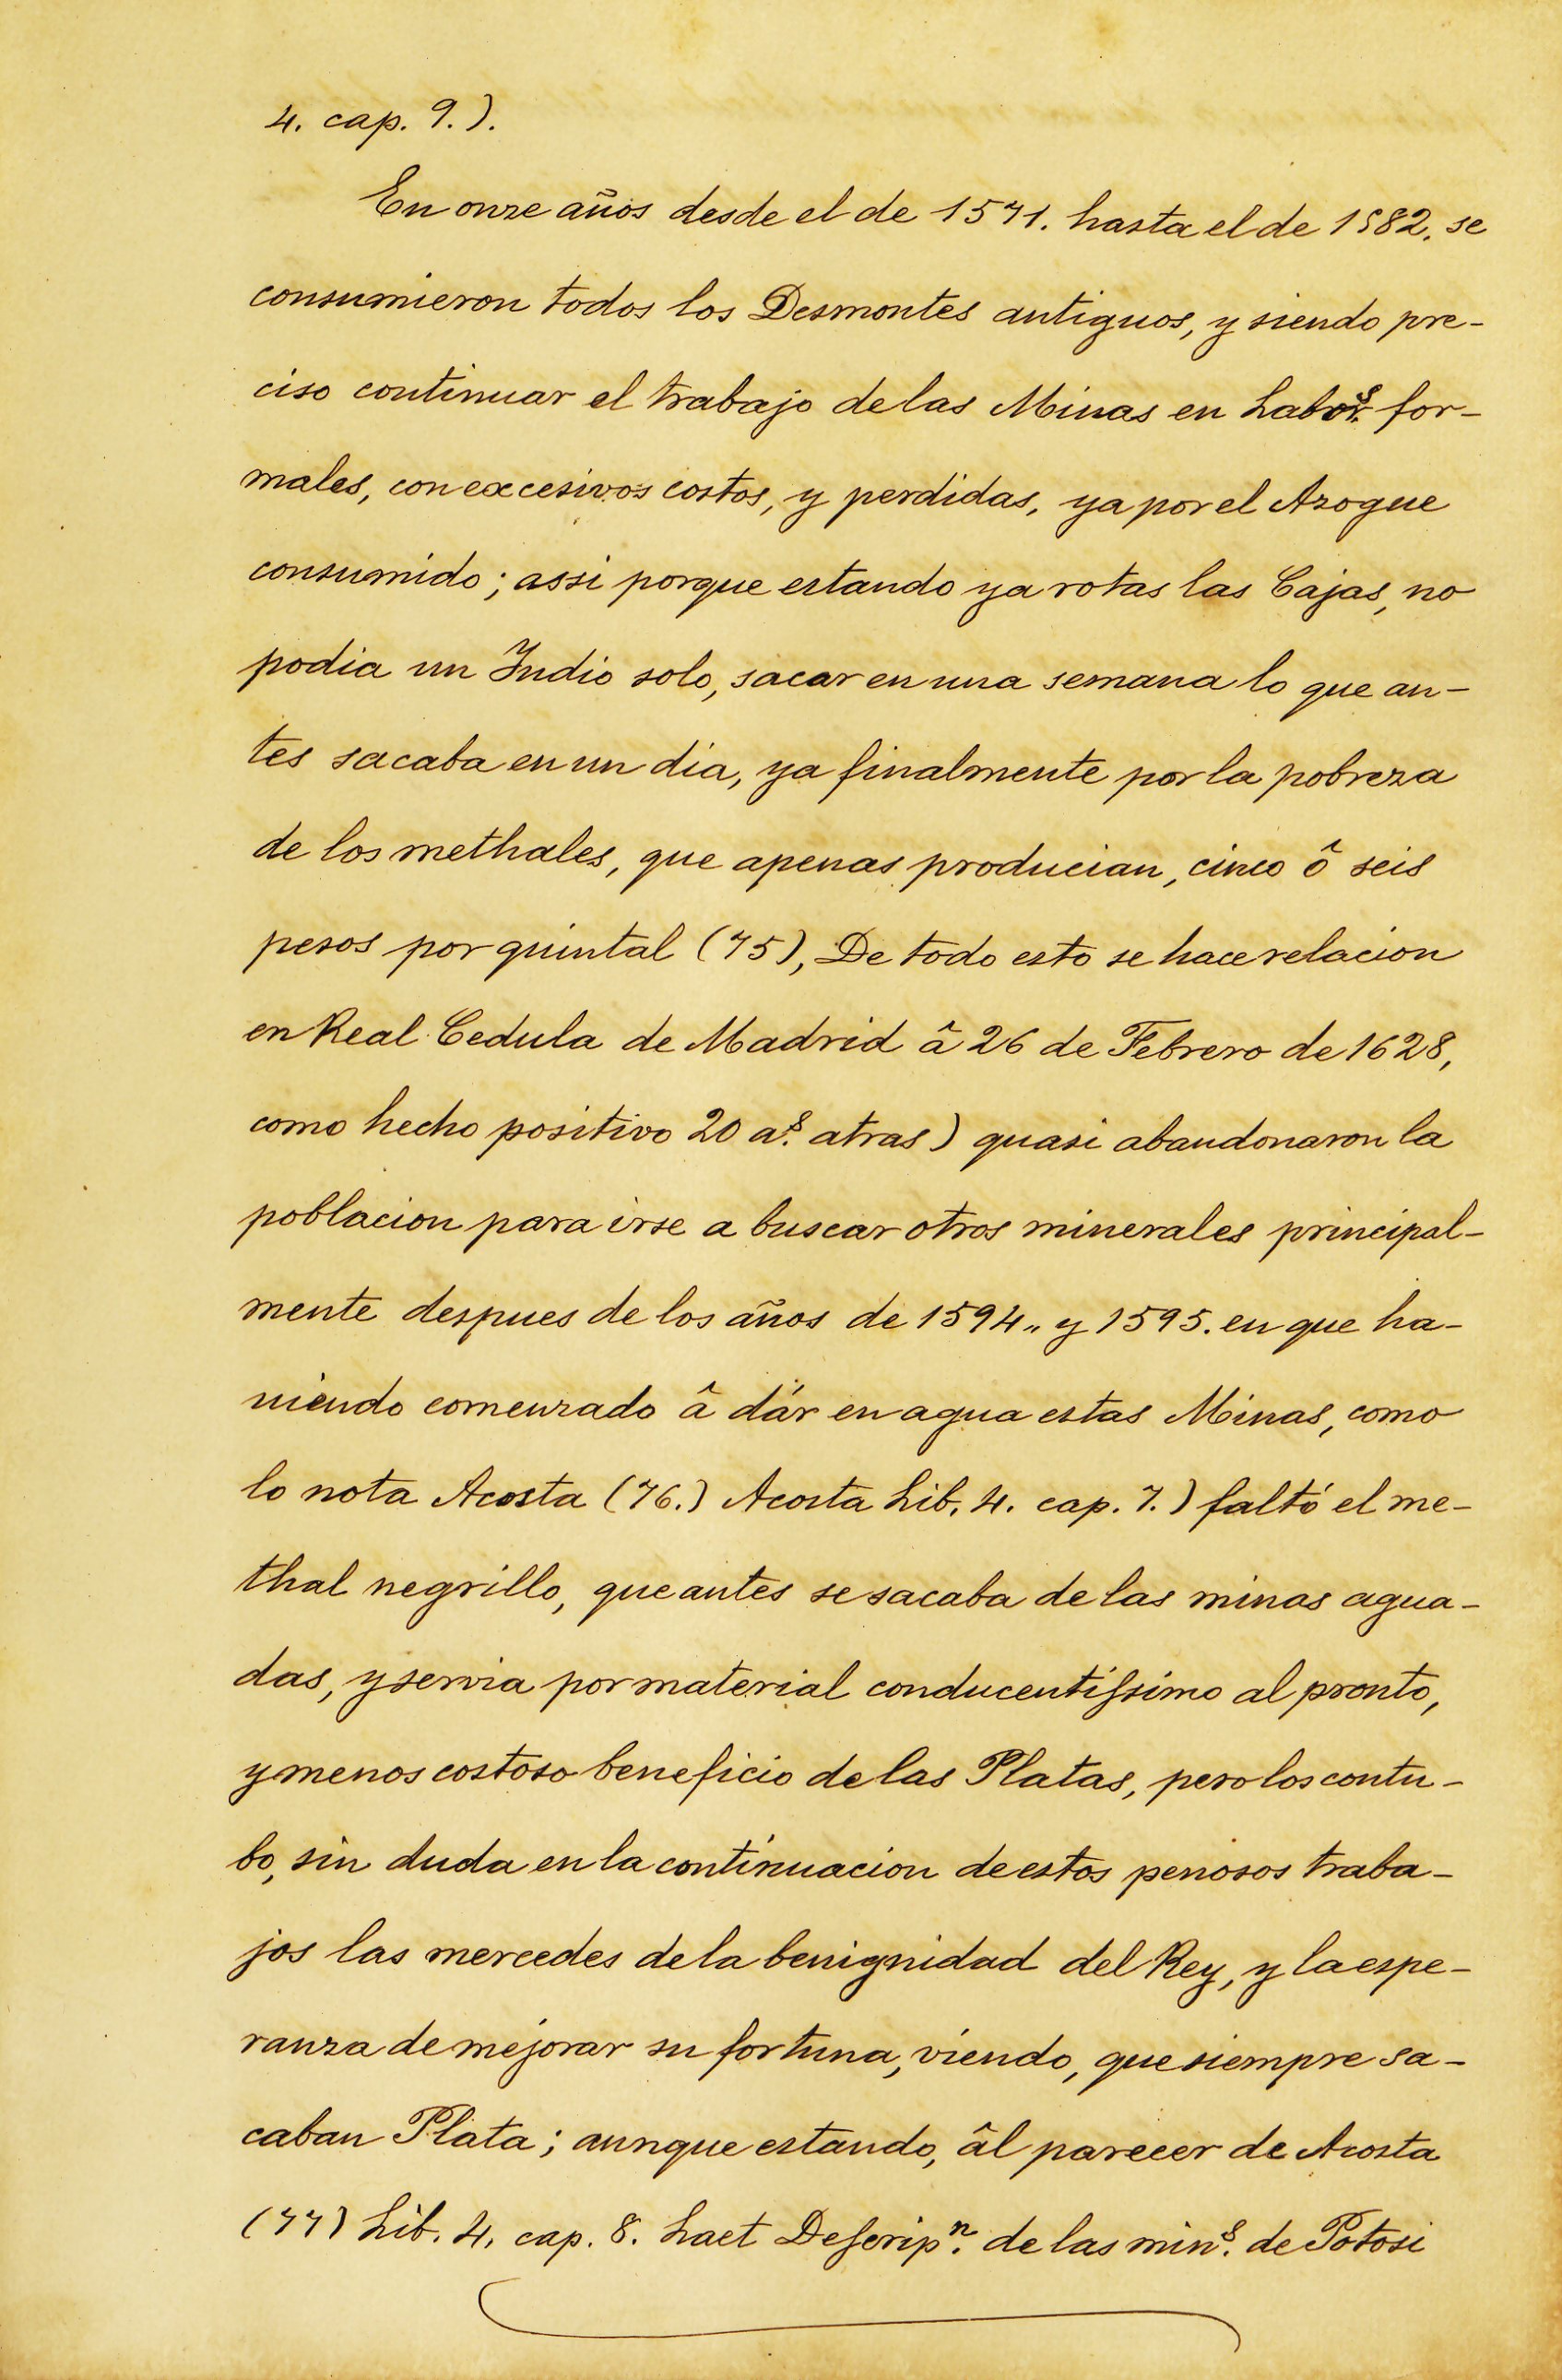 4. cap. 9.).
En onze años desde el de 1571. hasta el de 1582. se
consumieron todos los Desmontes antiguos, y siendo pre-
ciso continuar el trabajo de las Minas en Labor.s for-
males, con excesivos costos, y perdidas, ya por el Azogue
consumido; assi porque estando ya rotas las Cajas, no
podia un Indio solo, sacar en una semana lo que an-
tes sacaba en un dia, ya finalmente por la pobreza
de los methales, que apenas producian, cinco ô seis
pesos por quintal (75), De todo esto se hace relacion
en Real Cedula de Madrid â 26 de Febrero de 1628,
como hecho positivo 20 a.s atras) quasi abandonaron la
poblacion para irse a buscar otros minerales principal-
mente despues de los años de 1594,, y 1595. en que ha-
viendo comenzado â dár en agua estas Minas, como
lo nota Acosta (76.) Acosta Lib. 4. cap. 7.) faltó el me-
thal negrillo, que antes se sacaba de las minas agua-
das, y servia por material conducentissimo al pronto,
y menos costoso beneficio de las Platas, pero los contu-
bo, sin duda en la continuacion de estos penosos traba-
jos las mercedes de la benignidad del Rey, y la espe-
ranza de mejorar su fortuna, viendo, que siempre sa-
caban Plata; aunque estando, âl parecer de Acosta
(77) Lib. 4. cap. 8. Laet Descrip.n de las min.s de Potosi